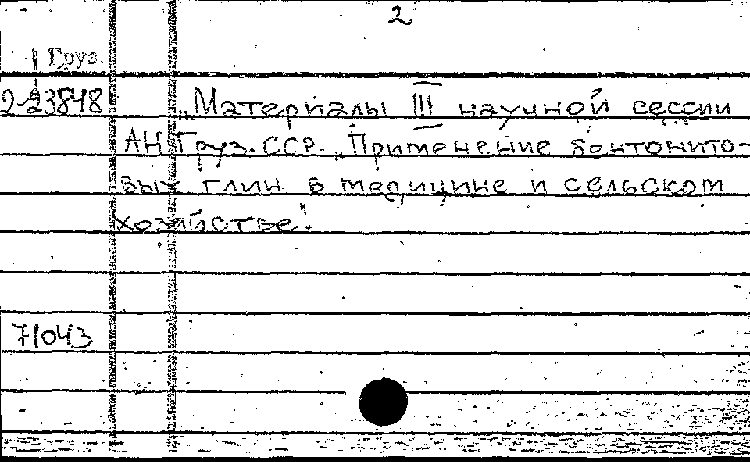 2
Груз
2-23848 „Материалы III научной сессии
АН Груз. ССР. „Применение бентонито-
вых глин в медицине и сельском
хозяйстве".
71043